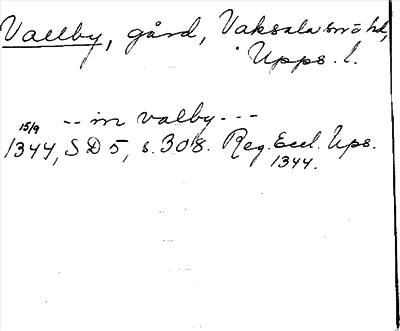 Vallby, gård, Vaksala sn o hd,
Upps. l.
-- in valby ---
15/9
1344, SD 5, s. 308. Reg. Eccl. Ups.
1344.